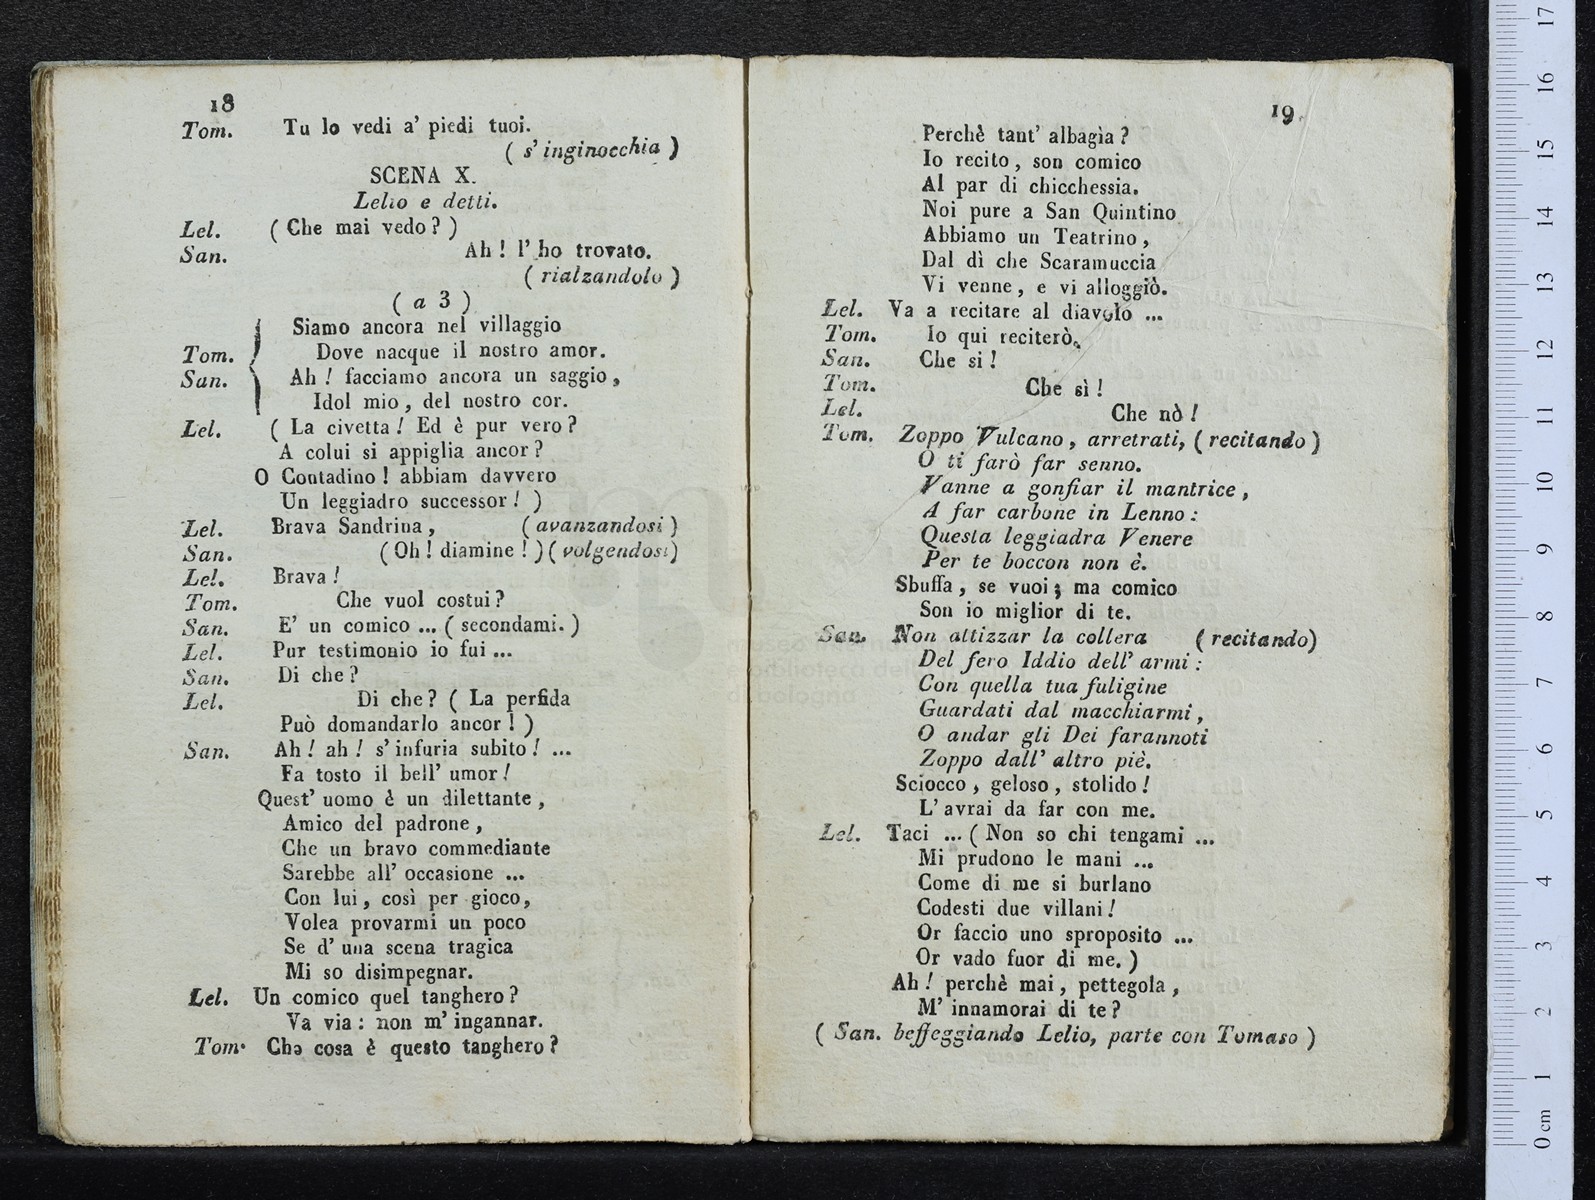 18
Tom. Tu lo vedi a' piedi tuoi.
( s' inginocchia )
SCENA X.
Lelio e detti.
Lel. ( Che mai vedo? )
San. Ah! l' ho trovato.
( rialzandolo )
( a 3 )
Siamo ancora nel villaggio
Tom. Dove nacque il nostro amor.
San. Ah! facciamo ancora un saggio,
Idol mio, del nostro cor.
Lel. ( La civetta! Ed è pur vero?
A colui si appiglia ancor?
O Contadino! abbiam davvero
Un leggiadro successor! )
Lel. Brava Sandrina, ( avanzandosi )
San. ( Oh! diamine! ) ( volgendosi )
Lel. Brava!
Tom. Che vuol costui?
San. E' un comico ... ( secondami. )
Lel. Pur testimonio io fui ...
San. Di che?
Lel. Di che? ( La perfida
Può domandarlo ancor! )
San. Ah! ah! s' infuria subito! ...
Fa tosto il bell' umor!
Quest' uomo è un dilettante,
Amico del padrone,
Che un bravo commediante
Sarebbe all' occasione ...
Con lui, così per gioco,
Volea provarmi un poco
Se d' una scena tragica
Mi so disimpegnar.
Lel. Un comico quel tanghero?
Va via: non m' ingannar.
Tom. Che cosa è questo tanghero?
19
Perchè tant' albagìa?
Io recito, son comico
Al par di chicchessia.
Noi pure a San Quintino
Abbiamo un Teatrino,
Dal dì che Scaramuccia
Vi venne, e vi alloggiò.
Lel. Va a recitare al diavolo ...
Tom. Io qui reciterò.
San. Che sì!
Tom. Che sì!
Lel. Che nò!
Tom. Zoppo Vulcano, arretrati, ( recitando )
O ti farò far senno.
Vanne a gonfiar il mantrice,
A far carbone in Lenno:
Questa leggiadra Venere
Per te boccon non è.
Sbuffa, se vuoi; ma comico
Son io miglior di te.
San. Non attizzar la collera ( recitando)
Del fero Iddio dell' armi:
Con quella tua fuligine
Guardati dal macchiarmi,
O andar gli Dei farannoti
Zoppo dall' altro piè.
Sciocco, geloso, stolido!
L' avrai da far con me.
Lel. Taci ... ( Non so chi tengami ...
Mi prudono le mani ...
Come di me si burlano
Codesti due villani!
Or faccio uno sproposito ...
Or vado fuor di me. )
Ah! perchè mai, pettegola,
M' innamorai di te?
( San. beffeggiando Lelio, parte con Tomaso )
museo internazionale
e biblioteca della musica
di bologna
17
16
15
14
13
12
11
10
9
8
7
6
5
4
3
2
1
0 cm